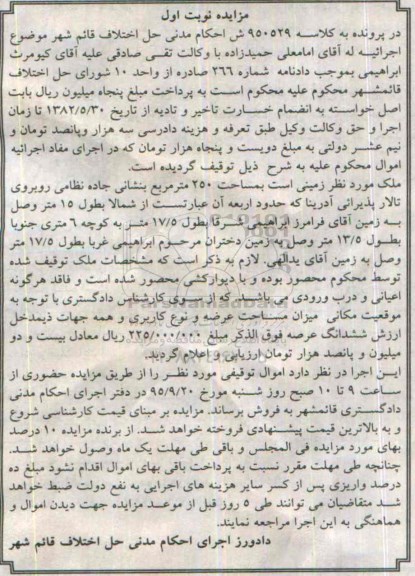 مزایده نوبت اول
در پرونده به کلاسه ۹۵۰۵۲۹ ش احکام مدنی حل اختلاف قائم شهر موضوع
اجرائیه له آقای امامعلی حمیدزاده با وکالت تقی صادقی علیه آقای کیومرث
ابراهیمی بموجب دادنامه شماره ۲۶۶ صادره از واحد ۱۰ شورای حل اختلاف
قائمشهر محکوم علیه محکوم است به پرداخت مبلغ پنجاه میلیون ریال بابت
اصل خواسته به انضمام خسارت تاخیر و تادیه از تاریخ ۱۳۸۲/۵/۳۰ تا زمان
اجرا و حق وکالت وکیل طبق تعرفه و هزینه دادرسی سه هزار وپانصد تومان و
نیم عشر دولتی به مبلغ دویست و پنجاه هزار تومان که در اجرای مفاد اجرائیه
اموال محکوم علیه به شرح ذیل توقیف گردیده است.
ملک مورد نظر زمینی است بمساحت ۲۵۰ مترمربع بنشانی جاده نظامی روبروی
تالار پذیرائی آدرینا که حدود اربعه آن عبارتست از شمالا بطول ۱۵ متر وصل
به زمین آقای فرامرز ابراهیمی شرقا بطول ۱۷/۵ متر به کوچه ۶ متری جنوبا
بطول ۱۳/۵ متر وصل به زمین دختران مرحوم ابراهیمی غربا بطول ۱۷/۵ متر
وصل به زمین آقای یدالهی. لازم به ذکر است که مشخصات ملک توقیف شده
توسط محکوم محصور بوده و با دیوارکشی محصور شده است و فاقد هرگونه
اعیانی و درب ورودی می باشد که از سوی کارشناس دادگستری با توجه به
موقعیت مکانی میزان مساحت عرصه و نوع کاربری و همه جهات ذیمدخل
ارزش ششدانگ عرصه فوق الذکر مبلغ ۲۲۵/۰۰۰/۰۰۰ ریال معادل بیست و دو
میلیون و پانصد هزار تومان ارزیابی و اعلام گردید.
این اجرا در نظر دارد اموال توقیفی مورد نظر را از طریق مزایده حضوری از
ساعت ۹ تا ۱۰ صبح روز شنبه مورخ ۹۵/۹/۲۰ در دفتر اجرای احکام مدنی
دادگستری قائمشهر به فروش برساند. مزایده بر مبنای قیمت کارشناسی شروع
و به بالاترین قیمت پیشنهادی فروخته خواهد شد. از برنده مزایده ۱۰ درصد
بهای مورد مزایده فی المجلس و باقی طی مهلت یک ماه وصول خواهد شد.
چنانچه طی مهلت مقرر نسبت به پرداخت باقی بهای اموال اقدام نشود مبلغ ده
درصد واریزی پس از کسر سایر هزینه های اجرایی به نفع دولت ضبط خواهد
شد متقاضیان می توانند طی ۵ روز قبل از موعد مزایده جهت دیدن اموال و
هماهنگی به این اجرا مراجعه نمایند.
دادورز اجرای احکام مدنی حل اختلاف قائم شهر